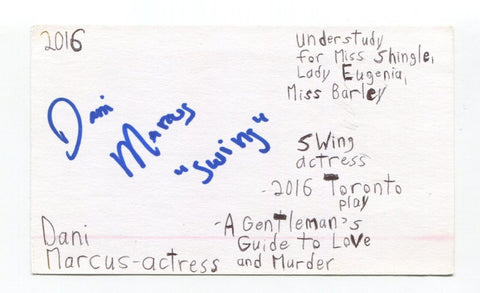 2016
Understudy
for Miss Shingle,
Lady Eugenia,
Miss Barley
Dani
Marcus
"Swing"
Swing
actress
-2016 Toronto
play
-A Gentleman's
Guide to Love
and Murder
Dani
Marcus-actress